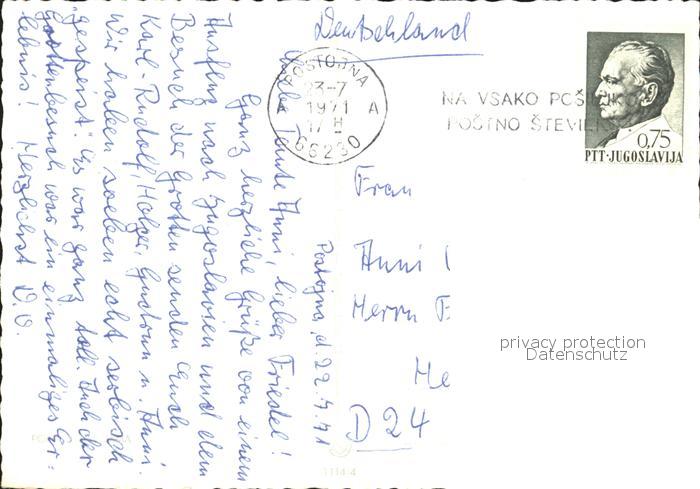 Deutschland
POSTOJNA
23-7
A 1971 A
17 H
66230
NA VSAKO POŠILJKO
POŠTNO ŠTEVILKO
0,75
PTT·JUGOSLAVIJA
Frau
Anni
Herrn
He
D 24
privacy protection
Datenschutz
Postojna, d. 22.7.71
Liebe Tante Anni, lieber Friedel!
Ganz herzliche Grüße von einem
Ausflug nach Jugoslavien und dem
Besuch der Grotten senden Euch
Karl-Rudolf, Holger, Gudrun u. Anni.
Wir haben soeben echt serbisch
"gespeist". Es war ganz toll. Auch der
Grottenbesuch war ein einmaliges Er-
lebnis! Herzlichst D. O.
1114-4